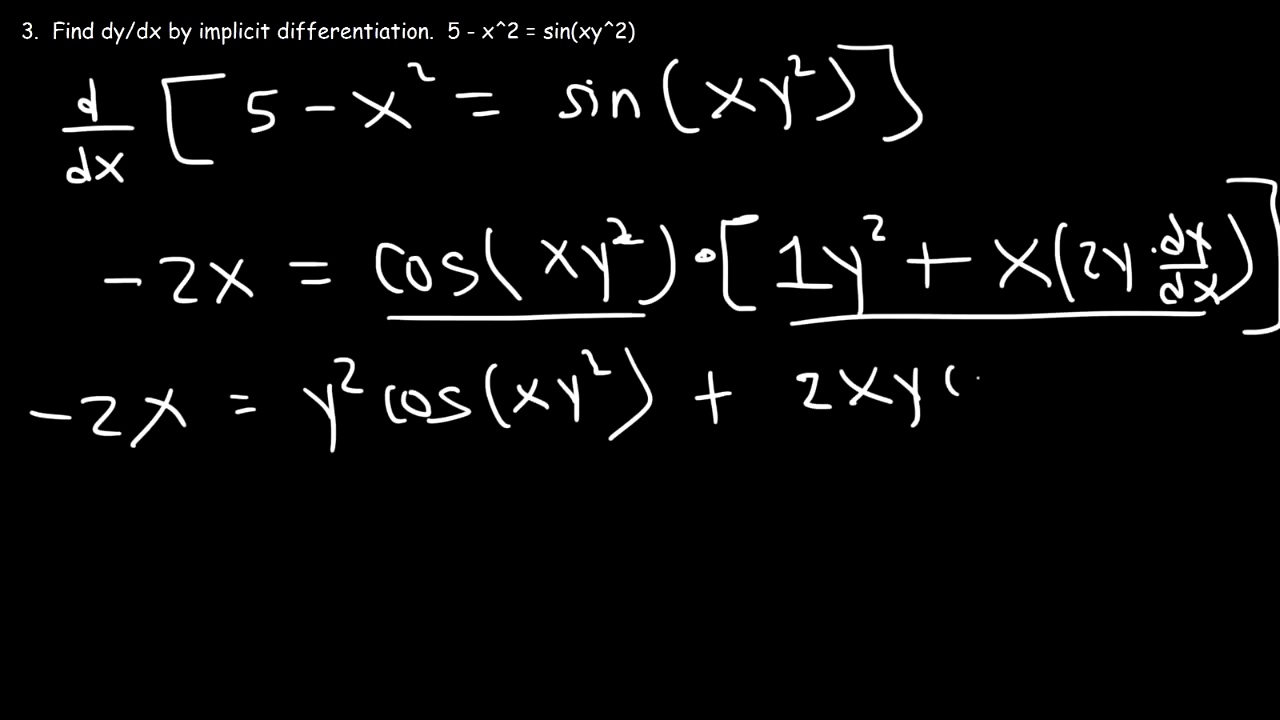 3. Find dy/dx by implicit differentiation. 5 - x^2 = sin(xy^2)
d/dx [5 - x² = sin(xy²)]
-2x = cos(xy²) · [1y² + x(2y · dx/dx)]
-2x = y² cos(xy²) + 2xy(